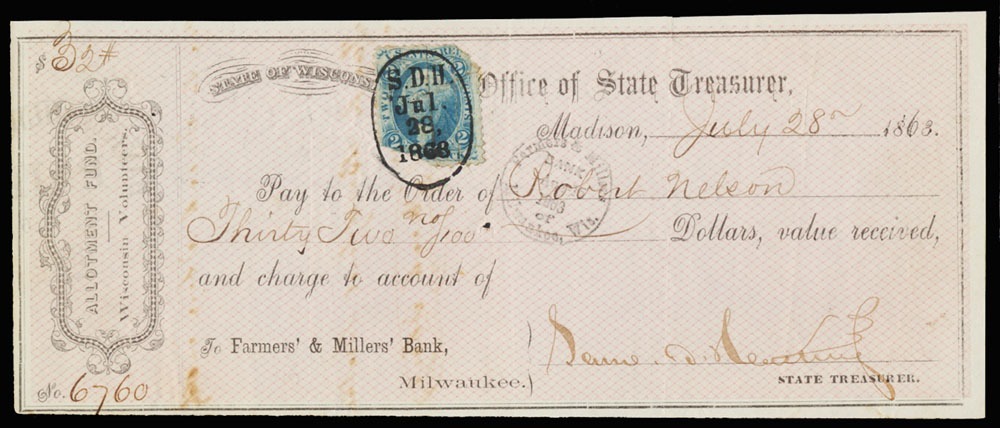 $ 32#
STATE OF WISCONSIN
Office of State Treasurer,
TWO CENTS
2 2
S.D.H.
Jul.
28,
1863
Madison, July 28 1863.
Farmers & Millers
BANK
1863
of
Wis.
Pay to the Order of Robert Nelson
Thirty Two no/100 Dollars, value received,
and charge to account of
To Farmers' & Millers' Bank,
Milwaukee.
STATE TREASURER.
ALLOTMENT FUND.
Wisconsin Volunteers.
No. 6760